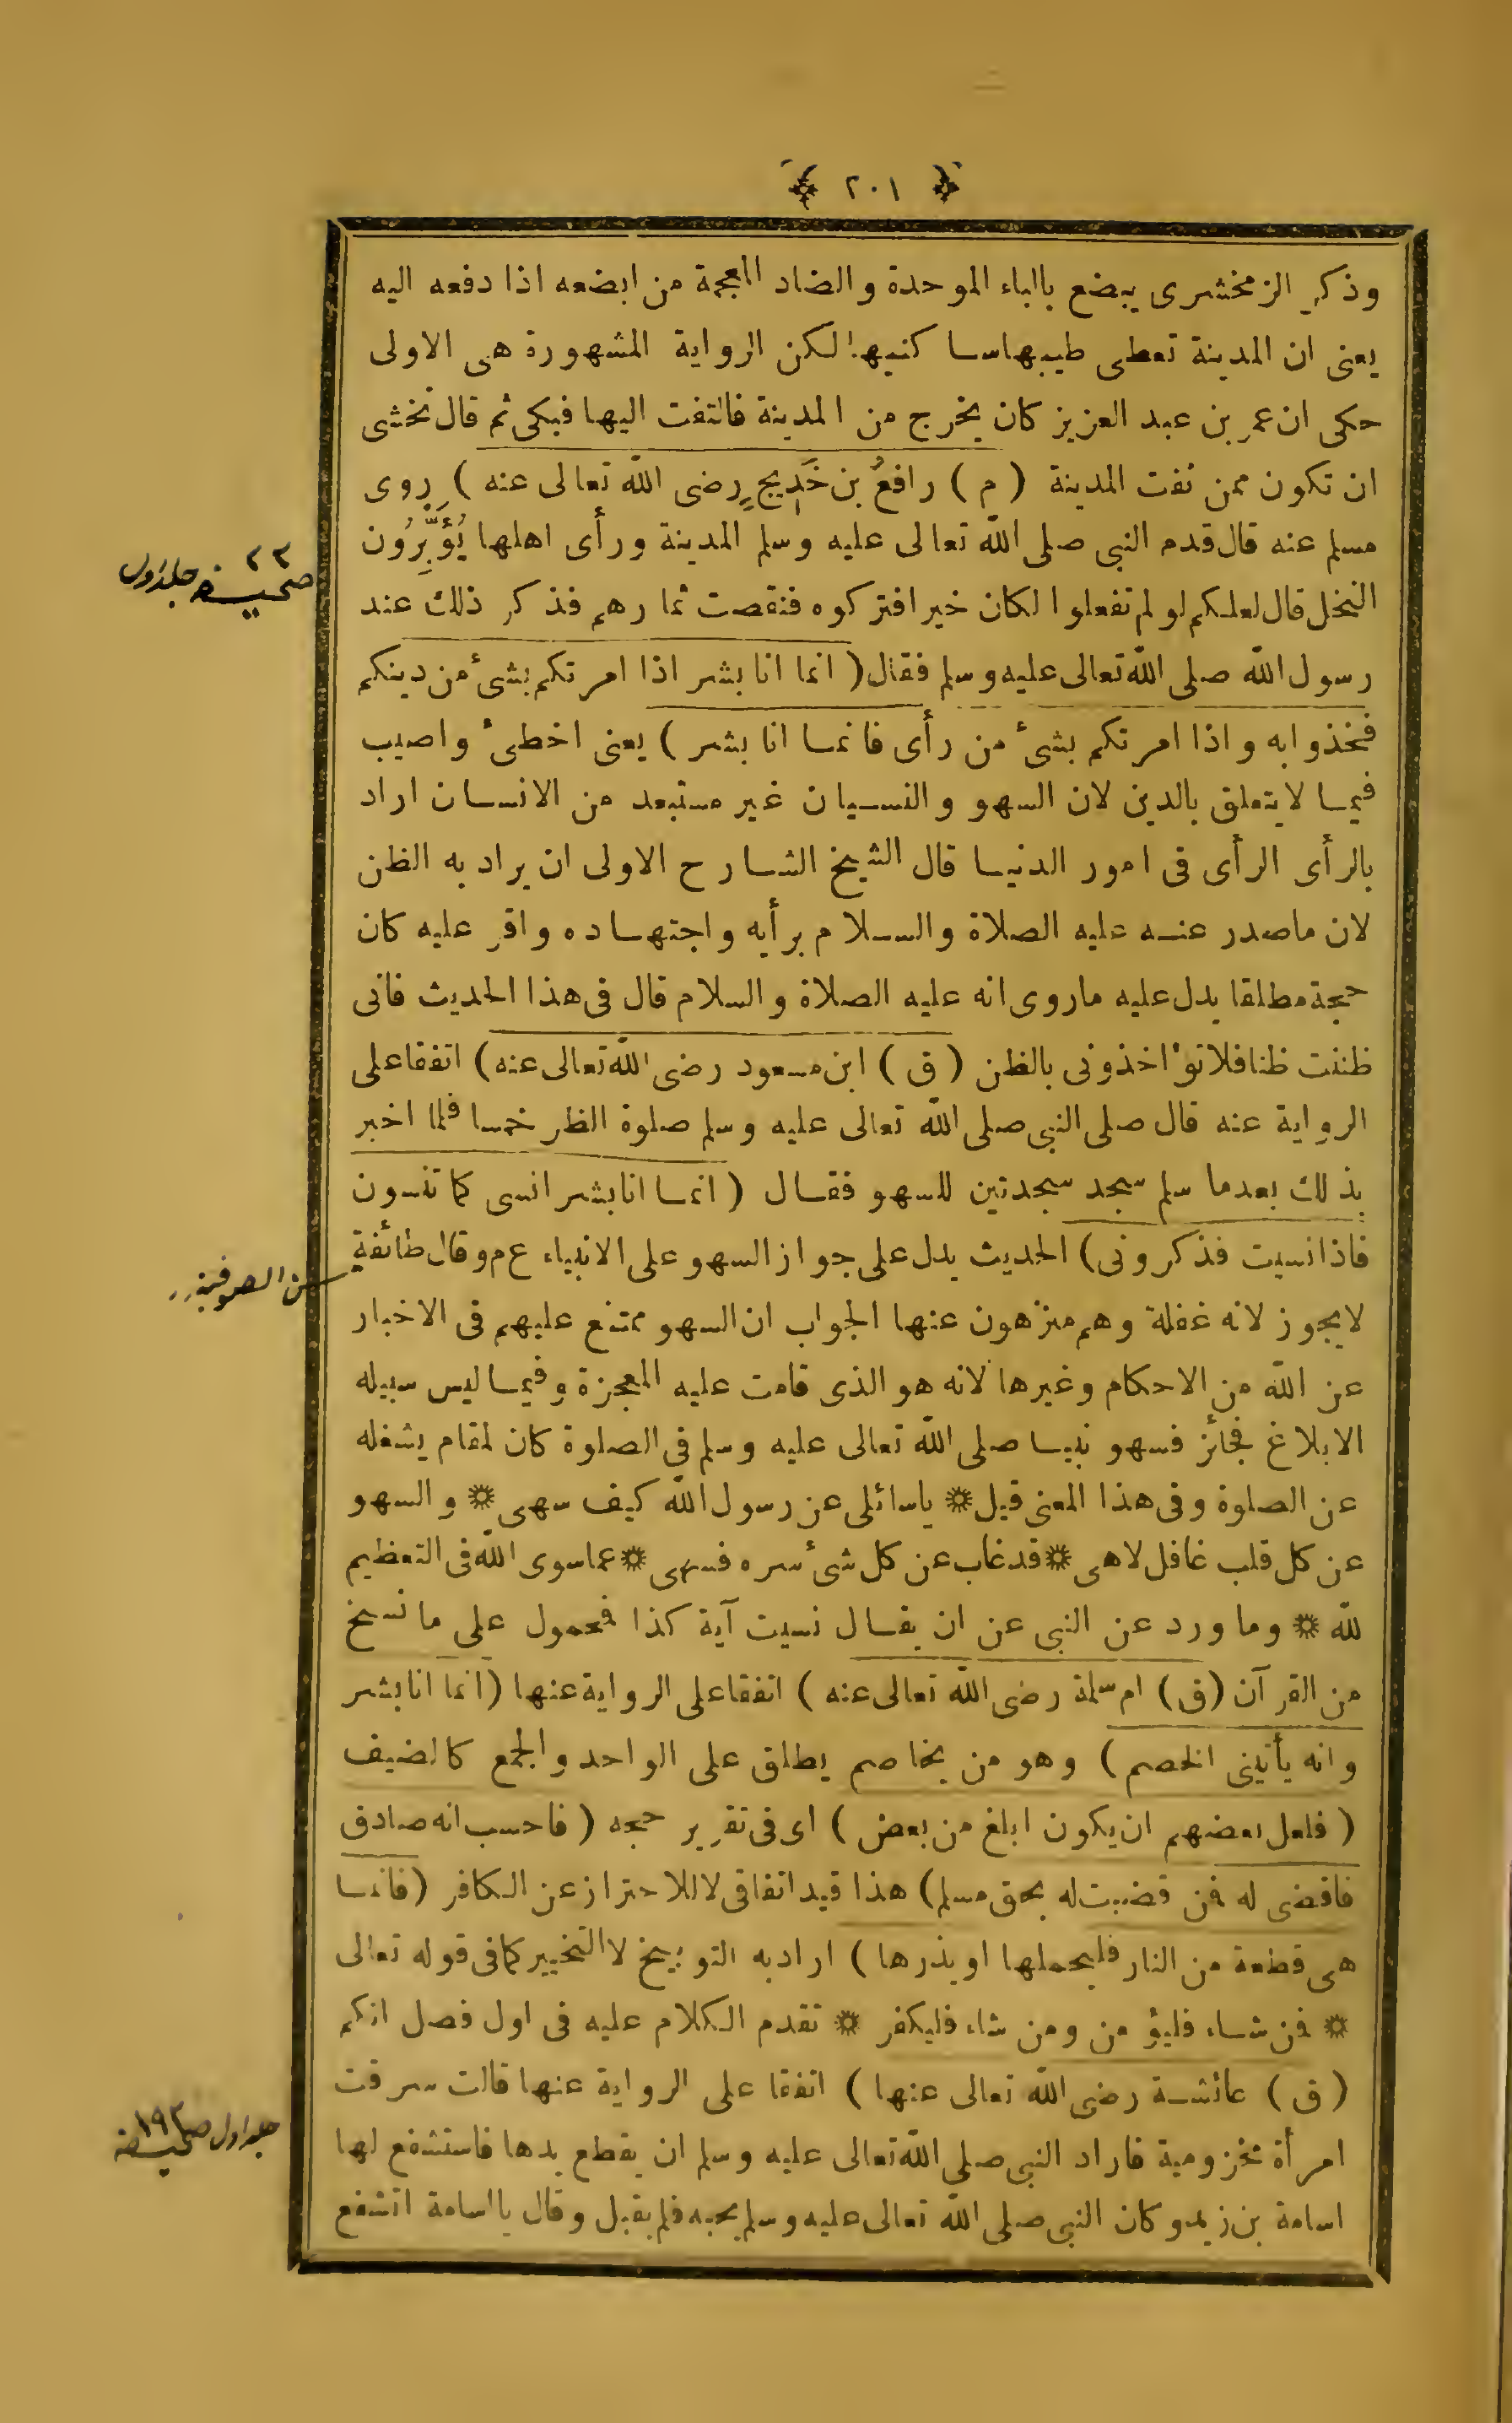 ﴿ ٢٠١ ﴾
وذكر الزمخشرى يبضع بالباء الموحدة والضاد المعجمة من ابضعه اذا دفعه اليه
يعنى ان المدينة تعطى طيبها سا كنيها لكن الرواية المشهورة هى الاولى
حكى ان عمر بن عبد العزيز كان يخرج من المدينة فالتفت اليها فبكى ثم قال نخشى
ان تكون ممن نفت المدينة ( م ) رافعُ بن خَدِيجٍ رضى الله تعالى عنه ) رِوى
مسلم عنه قال قدم النبى صلى الله تعالى عليه وسلم المدينة ورأى اهلها يُؤَبِّرُون
النخل قال لعلكم لو لم تفعلوا لكان خيرا فتركوه فنقصت ثمارهم فذكر ذلك عند
رسول الله صلى الله تعالى عليه وسلم فقال ( انما انا بشر اذا امرتكم بشئ من دينكم
فخذوا به واذا امرتكم بشئ من رأى فانما انا بشر ) يعنى اخطئ واصيب
فيما لا يتعلق بالدين لان السهو والنسيان غير مستبعد من الانسان اراد
بالرأى الرأى فى امور الدنيا قال الشيخ الشارح الاولى ان يراد به الظن
لان ماصدر عنه عليه الصلاة والسلام برأيه واجتهاده واقر عليه كان
حجة مطلقا يدل عليه ماروى انه عليه الصلاة والسلام قال فى هذا الحديث فانى
ظننت ظنا فلا تؤاخذونى بالظن ( ق ) ابن مسعود رضى الله تعالى عنه ) اتفقا على
الرواية عنه قال صلى النبى صلى الله تعالى عليه وسلم صلوة الظر خمسا فلما اخبر
بذلك بعدما سلم سجد سجدتين للسهو فقال ( انما انا بشر انسى كما تنسون
فاذا نسيت فذكرونى ) الحديث يدل على جواز السهو على الانبياء ع م وقال طائفة
من الصوفية
لا يجوز لانه غفلة وهم منزهون عنها الجواب ان السهو ممتنع عليهم فى الاخبار
عن الله من الاحكام وغيرها لانه هو الذى قامت عليه المعجزة وفيما ليس سبيله
الابلاغ فجائز فسهو نبينا صلى الله تعالى عليه وسلم فى الصلوة كان لمقام يشغله
عن الصلوة وفى هذا المعنى قيل * ياسائلى عن رسول الله كيف سهى * والسهو
عن كل قلب غافل لاهى * قد غاب عن كل شئ سره فسهى * عما سوى الله فى التعظيم
لله * وما ورد عن النبى عن ان يقال نسيت آية كذا فمحمول على ما نسخ
من القرآن ( ق ) ام سلمة رضى الله تعالى عنه ) اتفقا على الرواية عنها ( انما انا بشر
وانه يأتينى الخصم ) وهو من يخاصم يطلق على الواحد والجمع كالضيف
( فلعل بعضهم ان يكون ابلغ من بعض ) اى فى تقرير حجه ( فاحسب انه صادق
فاقضى له فمن قضيت له بحق مسلم ) هذا قيد اتفاقى لا للاحتراز عن الكافر ( فانما
هى قطعة من النار فليحملها او يذرها ) اراد به التوبيخ لا التخيير كما فى قوله تعالى
* فمن شاء فليؤمن ومن شاء فليكفر * تقدم الكلام عليه فى اول فصل انكم
( ق ) عائشة رضى الله تعالى عنها ) اتفقا على الرواية عنها قالت سرقت
امرأة مخزومية فاراد النبى صلى الله تعالى عليه وسلم ان يقطع يدها فاستشفع لها
اسامة بن زيد وكان النبى صلى الله تعالى عليه وسلم يحبه فلم يقبل وقال يا اسامة اتشفع
٢٢ صحيفه جلد اول
جلد اول ١٩٢ صحيفه